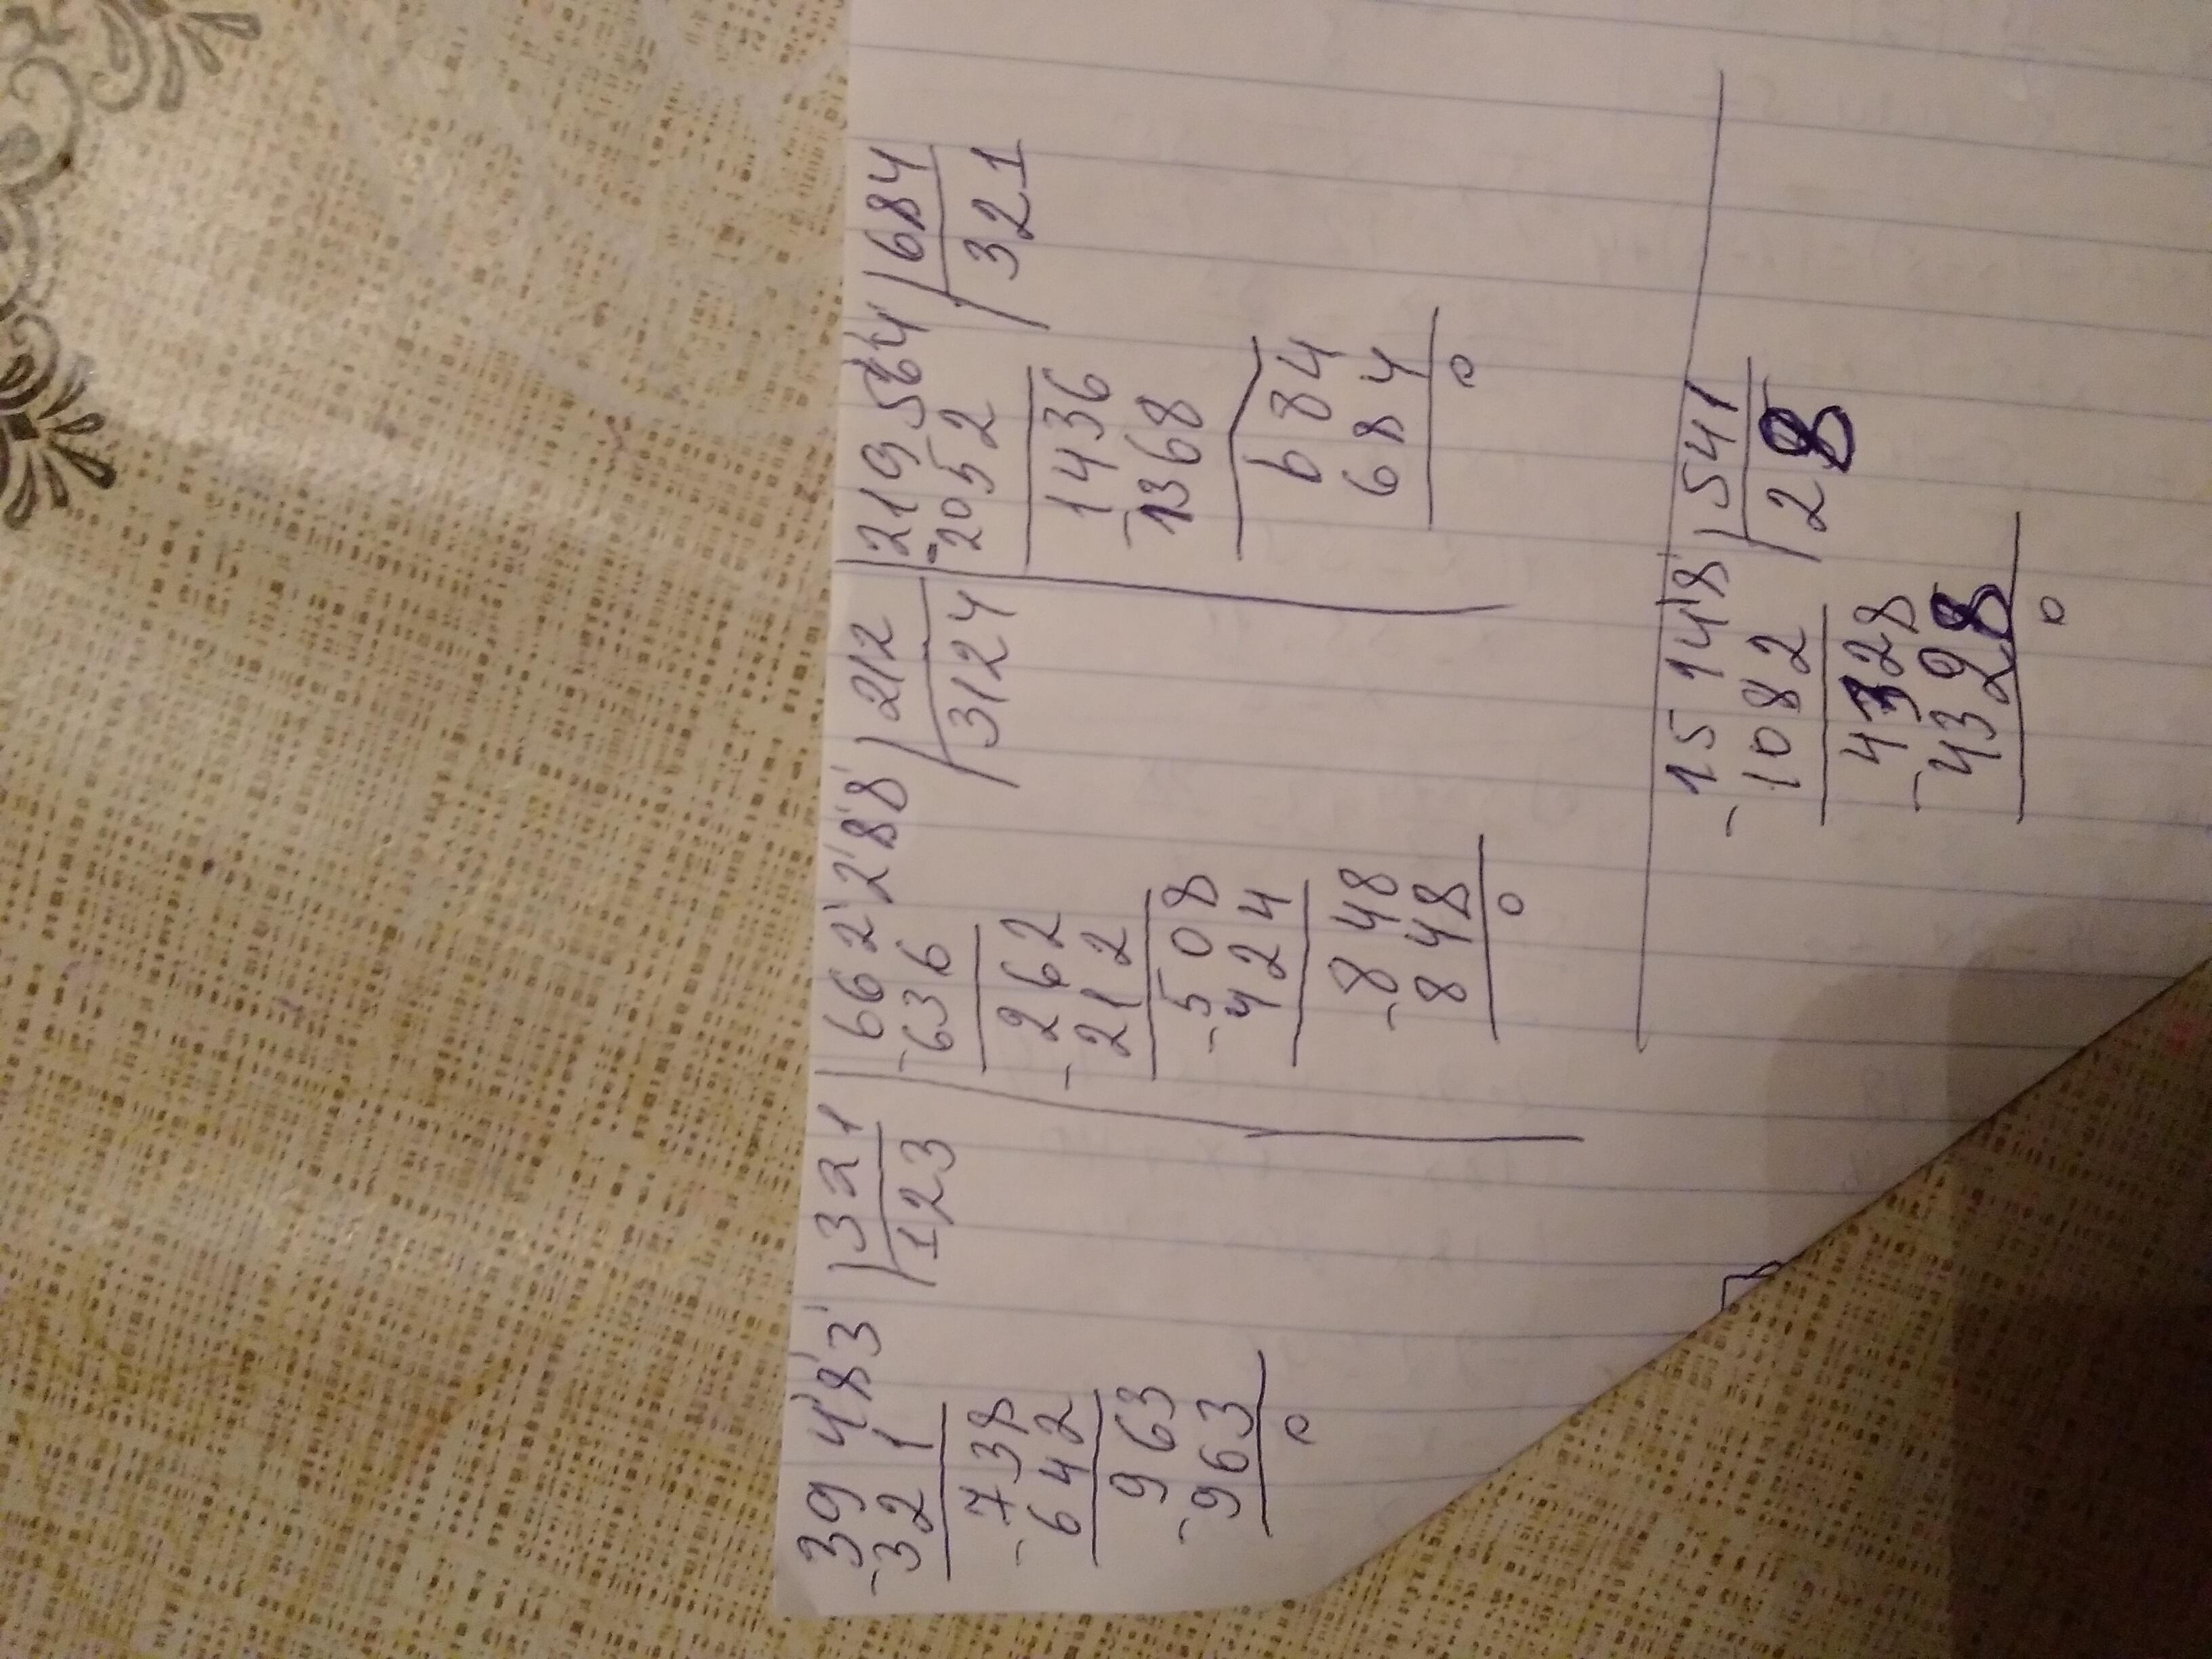 39483 | 321
-321 | 123
-738
642
-963
963
0
662288 | 212
-636 | 3124
-262
212
-508
424
-848
848
0
219564 | 684
-2052 | 321
1436
-1368
684
684
0
15148 | 541
-1082 | 28
4328
-4328
0